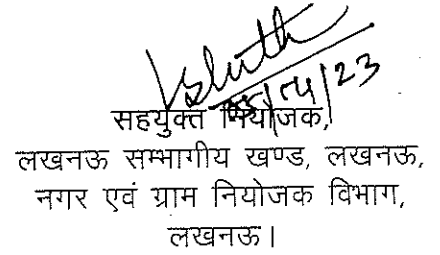 सहयुक्त नियोजक,
लखनऊ सम्भागीय खण्ड, लखनऊ,
नगर एवं ग्राम नियोजक विभाग,
लखनऊ।